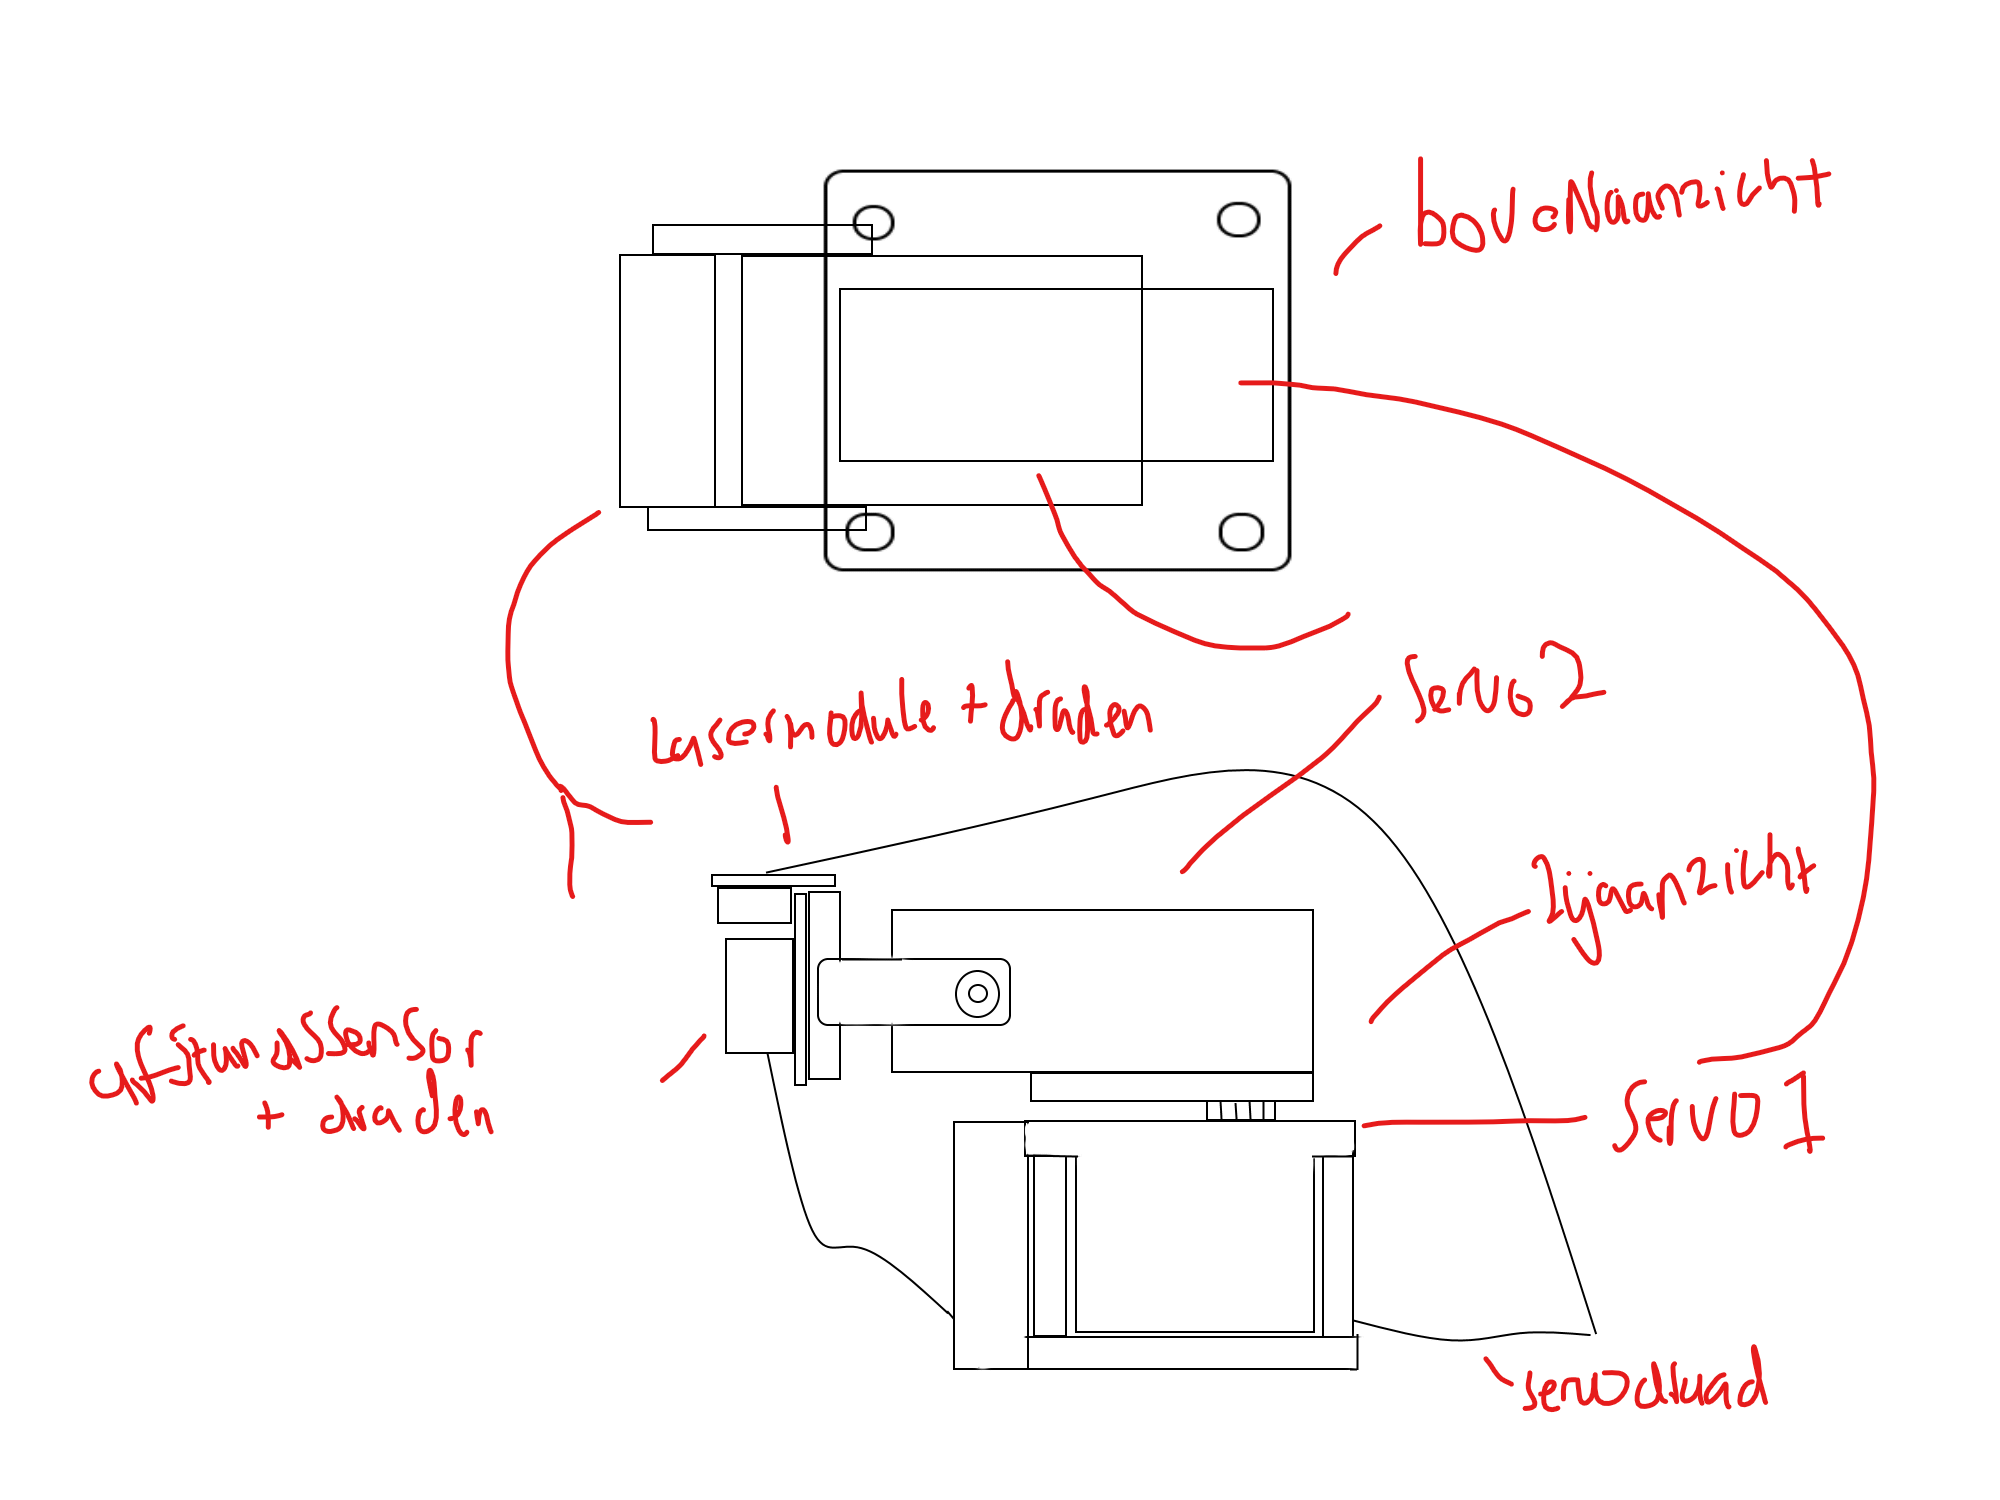 bovenaanzicht
Servo 2
Lasermodule + draden
Zijaanzicht
afstandssensor
+ draden
Servo 1
servodraad